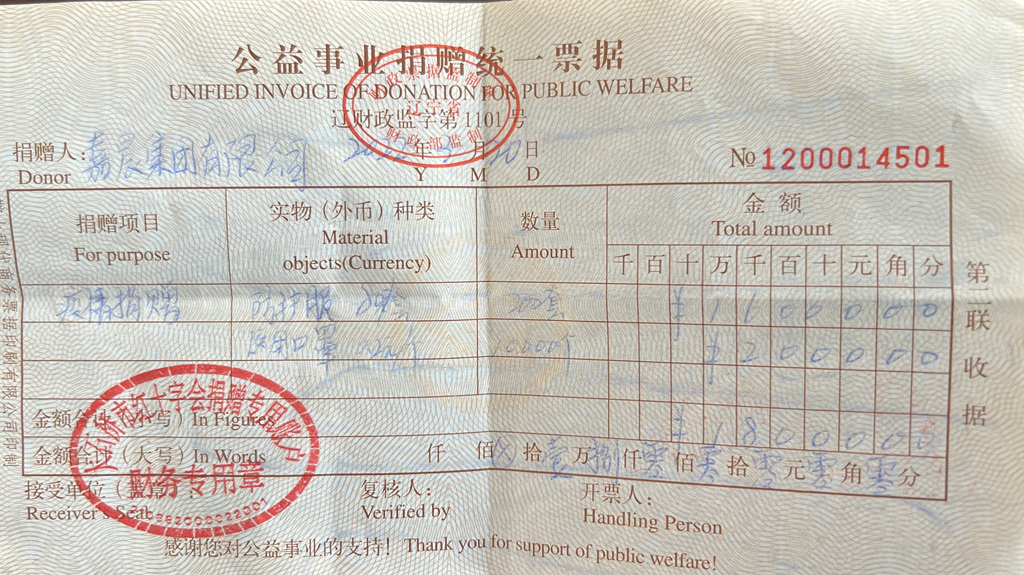 公益事业捐赠统一票据
UNIFIED INVOICE OF DONATION FOR PUBLIC WELFARE
辽财政监字第1101号
财政票据监制章
辽宁省
财政部监制
捐赠人:嘉晨集团有限公司 年 月20日
Donor Y M D
№1200014501
捐赠项目 实物(外币)种类 数量 金额
For purpose Material objects(Currency) Amount Total amount
千 百 十 万 千 百 十 元 角 分
疫情捐赠 防护服 200套 ¥ 1 6 0 0 0 0 0
医用口罩 10000个 ¥ 2 0 0 0 0 0
金额合计(小写)In Figures ¥ 1 8 0 0 0 0 0
金额合计(大写)In Words 仟 佰 拾壹万捌仟零佰零拾零元零角零分
接受单位(盖章): 复核人: 开票人:
Receiver's Seal Verified by Handling Person
市红十字会捐赠专用账户
财务专用章
感谢您对公益事业的支持!Thank you for support of public welfare!
第二联 收据